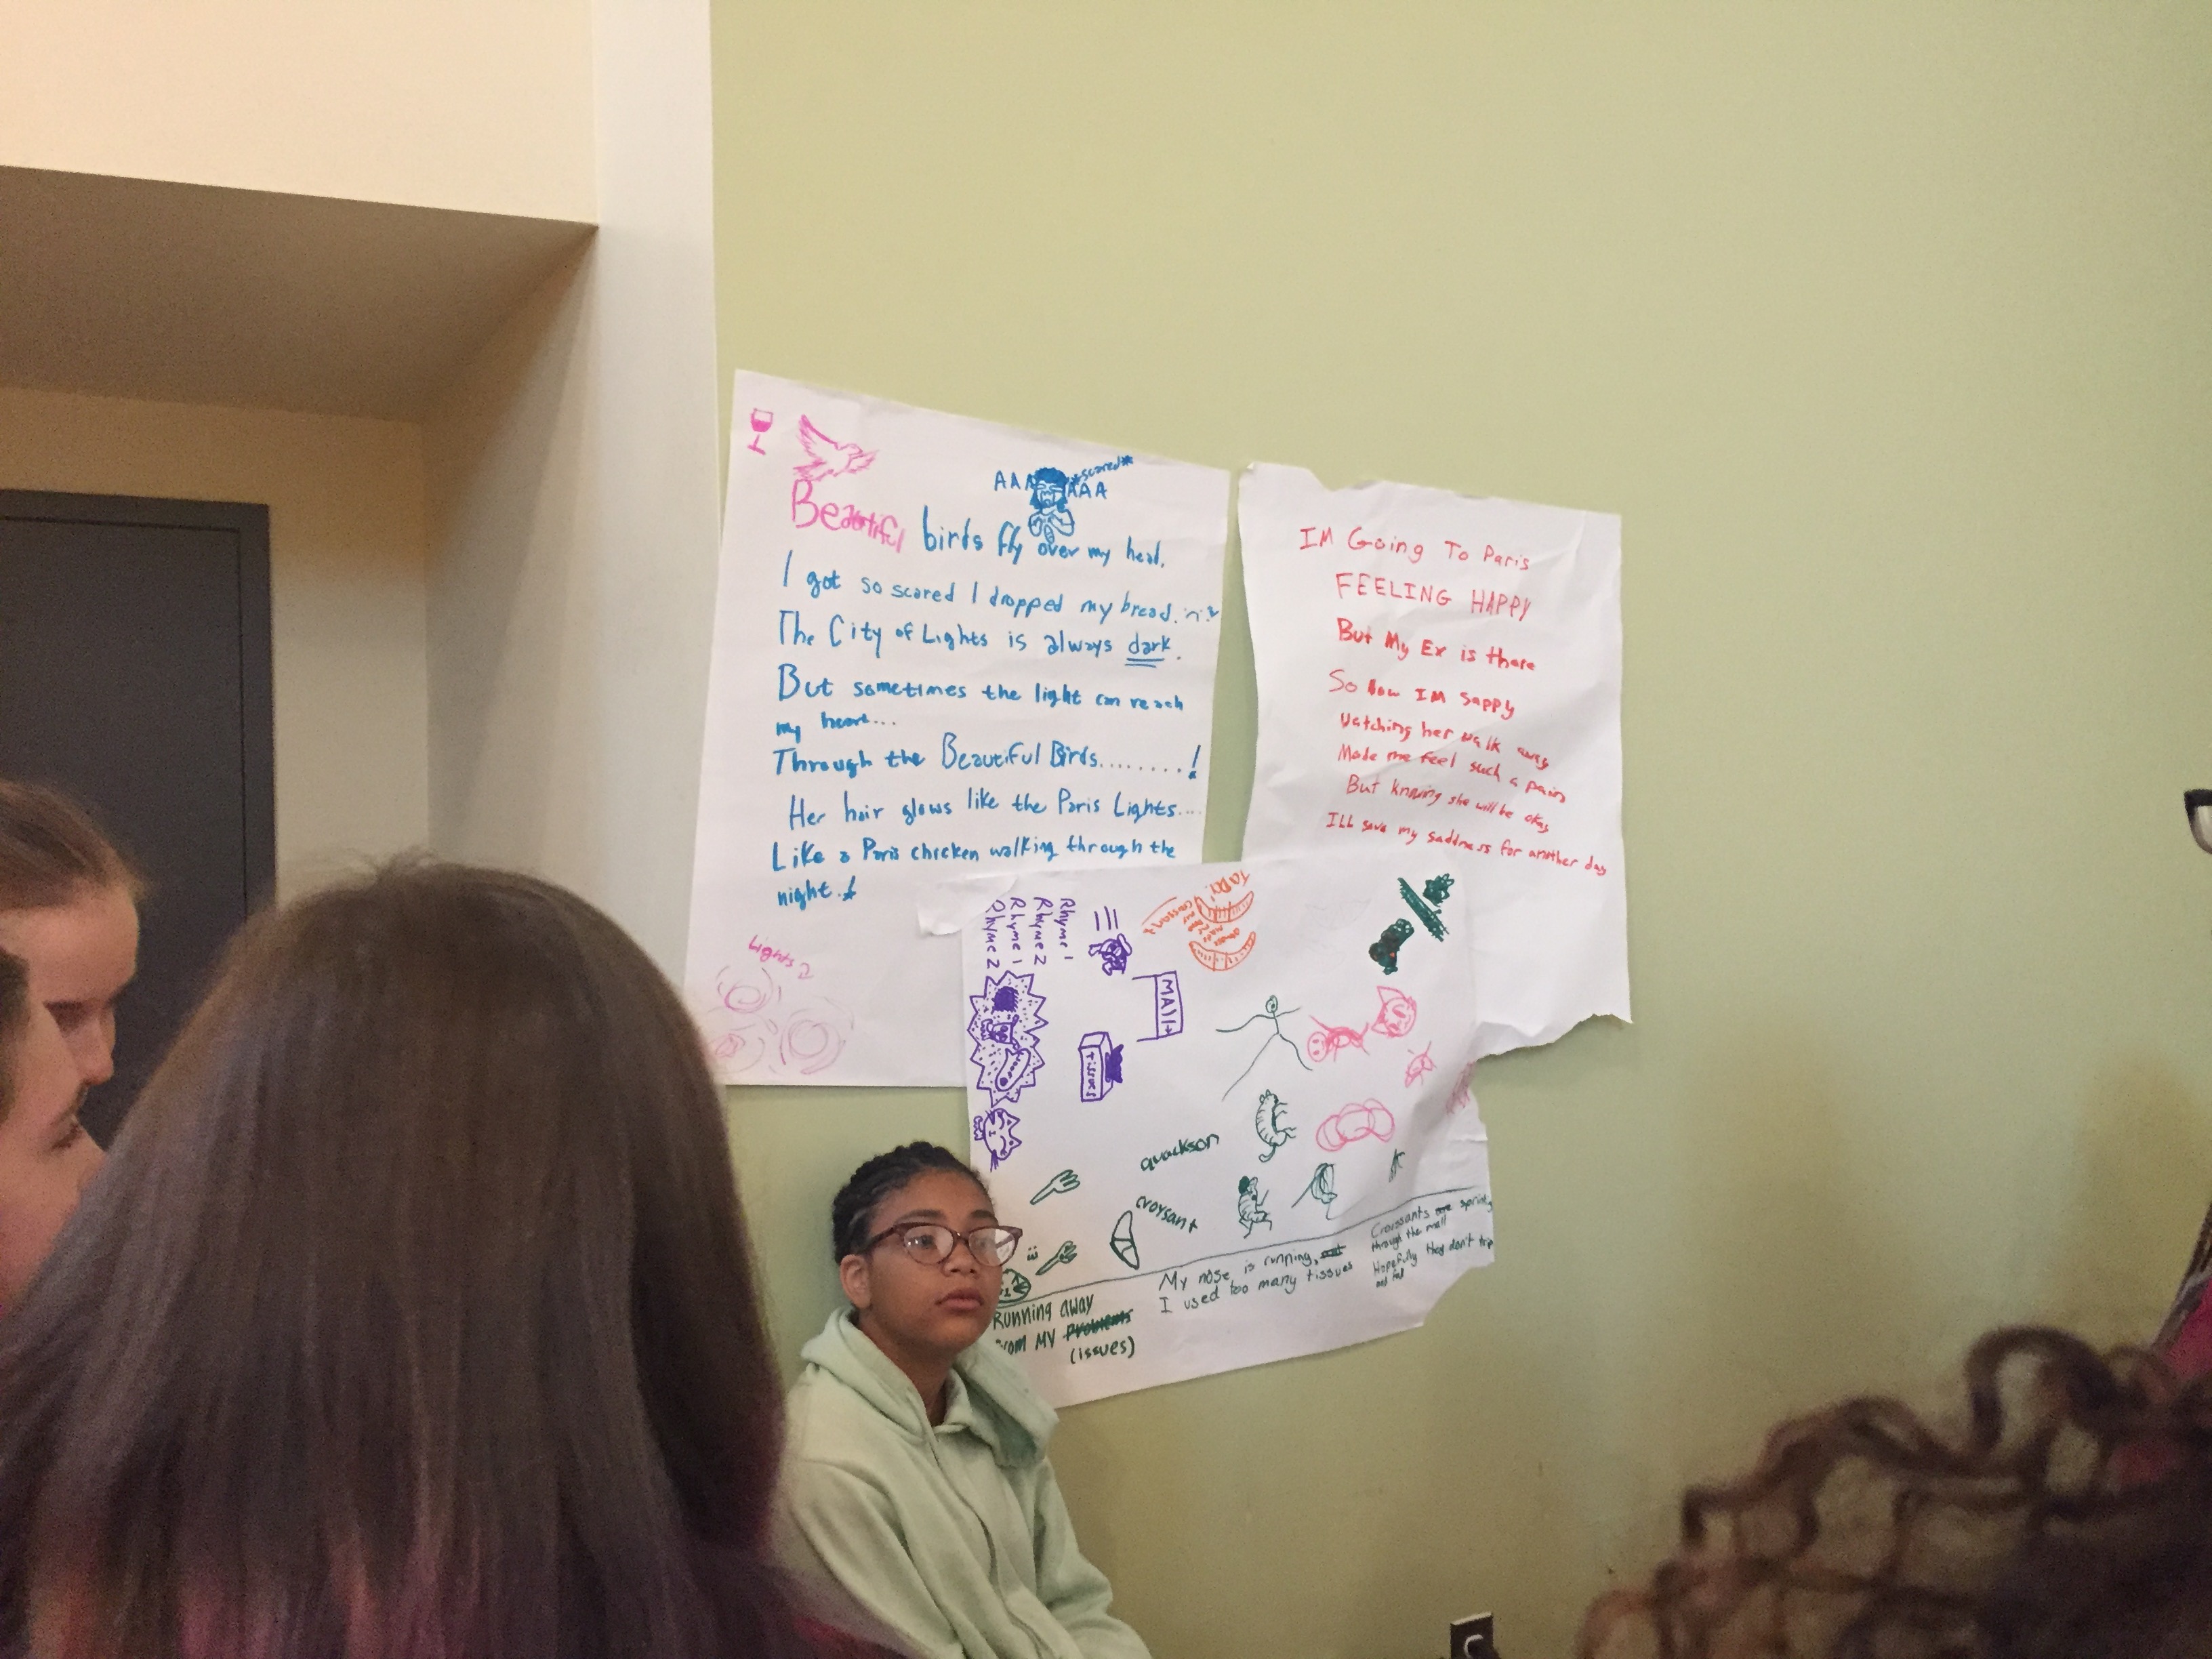 AAA AAA
*scared*
Beautiful birds fly over my head.
I got so scared I dropped my bread.
The City of Lights is always dark.
But sometimes the light can reach
my heart...
Through the Beautiful Birds........!
Her hair glows like the Paris Lights....
Like a Paris chicken walking through the
night.
Lights
IM Going To Paris
FEELING HAPPY
But My Ex is there
So Now IM sappy
Watching her walk away
Made me feel such a pain
But knowing she will be okay
ILL save my saddness for another day
Rhyme 1
Rhyme 2
Rhyme 1
Rhyme 2
MALL
tissues
quackson
croysant
Running away
from MY Problems
(issues)
My nose is running,
I used too many tissues
Croissants are
through the mall
Hopefully they don't trip
and fall